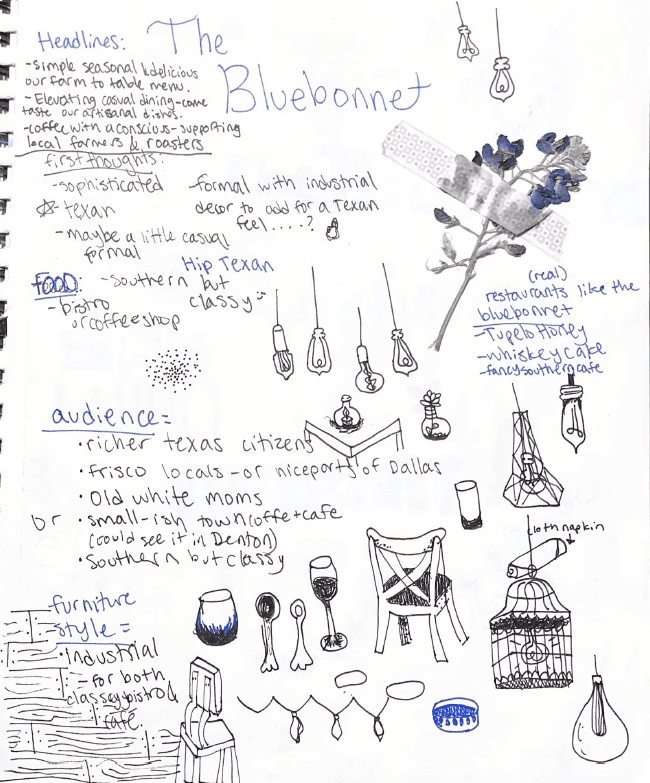 Headlines:
The
Bluebonnet
-simple seasonal & delicious
our farm to table menu.
-Elevating casual dining-come
taste our artisanal dishes.
-coffee with a conscious-supporting
local farmers & roasters
first thoughts:
-sophisticated
☆-texan
-maybe a little casual
formal
-formal with industrial
decor to add for a Texan
feel.....?
Hip Texan
FOOD:
-southern but
classy
-bistro
or coffee shop
(real)
restaurants like the
bluebonnet
-Tupelo Honey
-whiskey cake
-fancy southern cafe
audience=
•richer texas citizens
•frisco locals-or nice parts of Dallas
•Old white moms
or •small-ish town coffe+cafe
(could see it in Denton)
•southern but classy
cloth napkin
furniture
style=
•Industrial
-for both
classey bistro &
cafe.